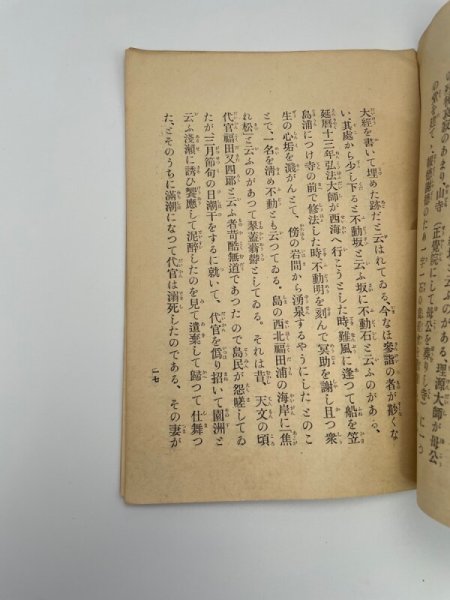 の堂を建て、
大經を書いて埋めた跡だと云はれてゐる。今なほ參詣の者が尠くな
い。其處から少し下ると不動坂と云ふ坂に不動石と云ふのがある。
延曆十三年弘法大師が西海へ行かうとした時、難風に逢つて船を笠
島浦につけ寺の前で修法した時不動明を刻んで冥助を謝し且つ衆
生の心垢を濺がんとて、傍の岩間から湧泉するやうにしたとのこ
とで、一名を清め不動とも云つてゐる。島の西北福田浦の海岸に「焦
れ松」と云ふのがあつて翠蓋蓊鬱としてゐる。それは昔、天文の頃
代官福田又四郎と云ふ者苛酷無道であつたので島民が怨嗟してゐ
たが、三月節句の日潮干をするに就いて、代官を僞り招いて園洲と
云ふ淺瀨に誘ひ饗應して泥醉したのを見て遺棄して歸つて仕舞つ
た、とそのうちに滿潮になつて代官は溺死したのである。その妻が
一七